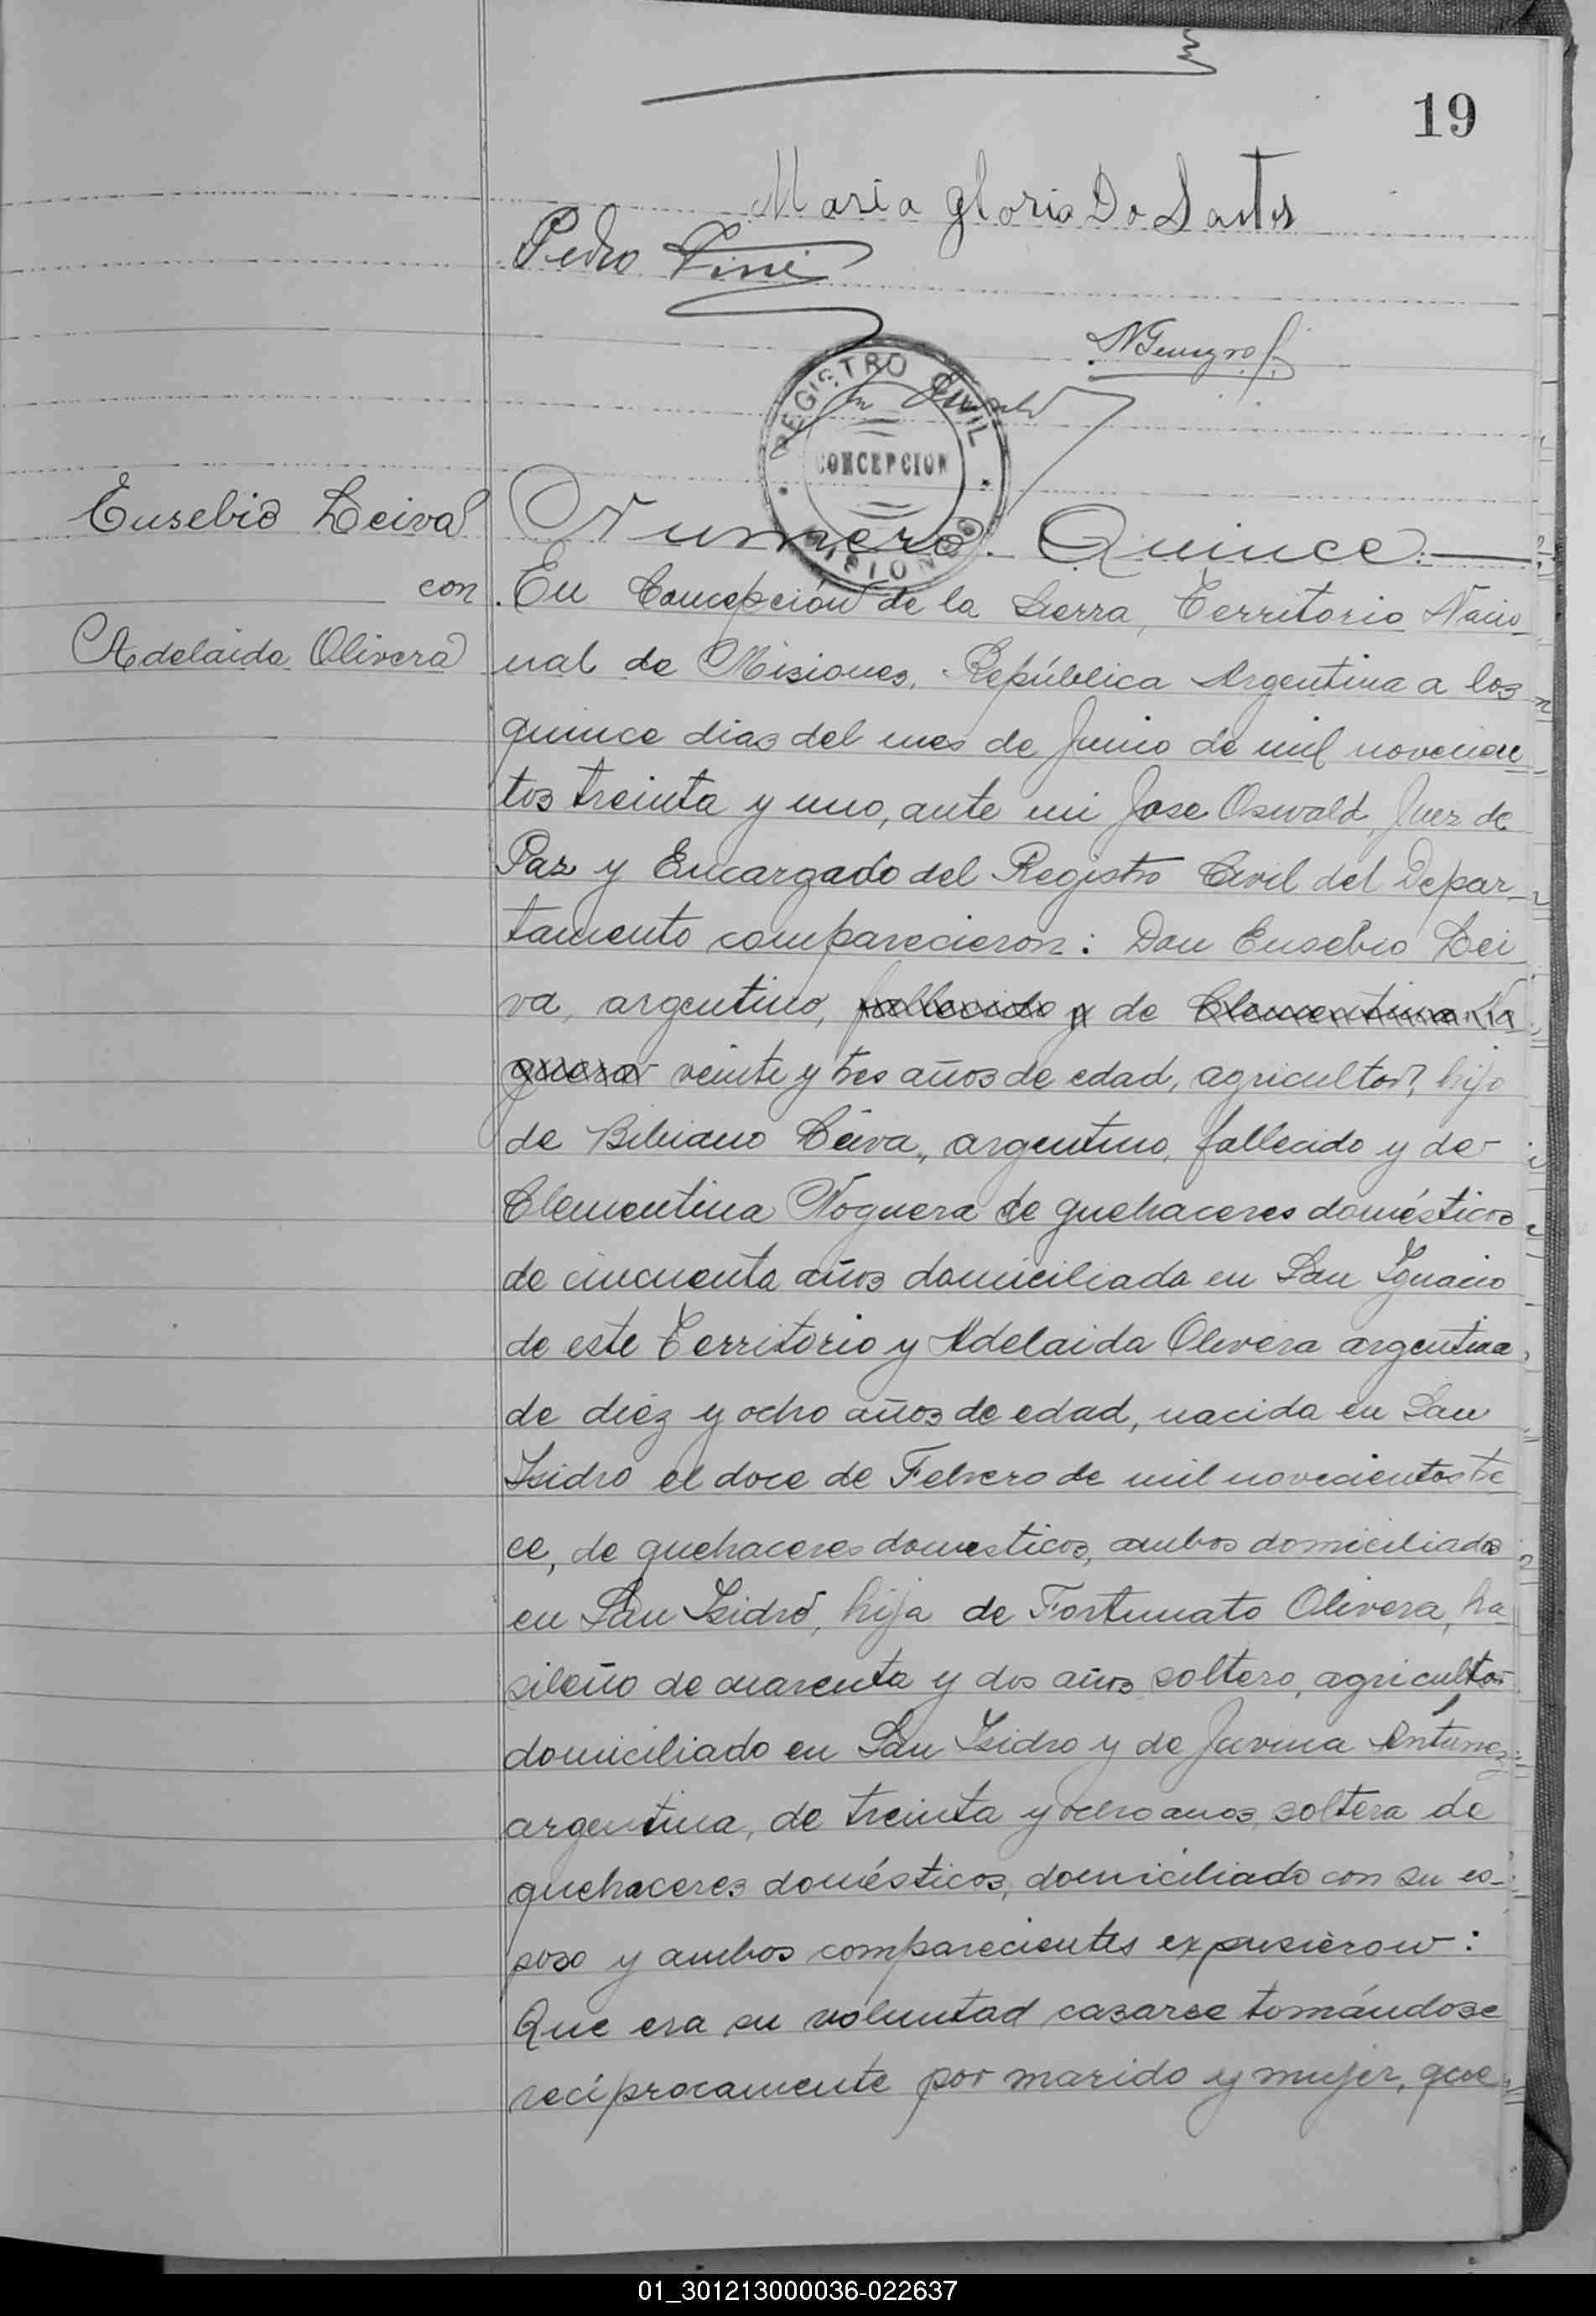 19
Maria gloria Do Santos
Pedro
REGISTRO CIVIL
CONCEPCION
MISIONES
Eusebio Leiva
con
Adelaida Olivera
Numero Quince.
En Concepción de la Sierra, Territorio Nacio
nal de Misiones, República Argentina a los
quince dias del mes de Junio de mil novecien
tos treinta y uno, ante mi Jose Oswald, Juez de
Paz y Encargado del Registro Civil del Depar-
tamento comparecieron: Don Eusebio Lei
va, argentino, fallecido y de Clementina No
guera veinte y tres años de edad, agricultor, hijo
de Bibiano Leiva, argentino, fallecido y de
Clementina Noguera de quehaceres domésticos
de cincuenta años domiciliada en San Ignacio
de este Territorio y Adelaida Olivera argentina,
de diez y ocho años de edad, nacida en San
Isidro el doce de Febrero de mil novecientos tre
ce, de quehaceres domesticos, ambos domiciliados
en San Isidro, hija de Fortunato Olivera, bra
sileño de cuarenta y dos años soltero, agricultor
domiciliado en San Isidro y de Juvina Antunez
argentina, de treinta y ocho anos, soltera de
quehaceres domésticos, domiciliado con su es-
poso y ambos comparecientes expusieron:
Que era su voluntad casarse tomándose
recíprocamente por marido y mujer, que
01_301213000036-022637